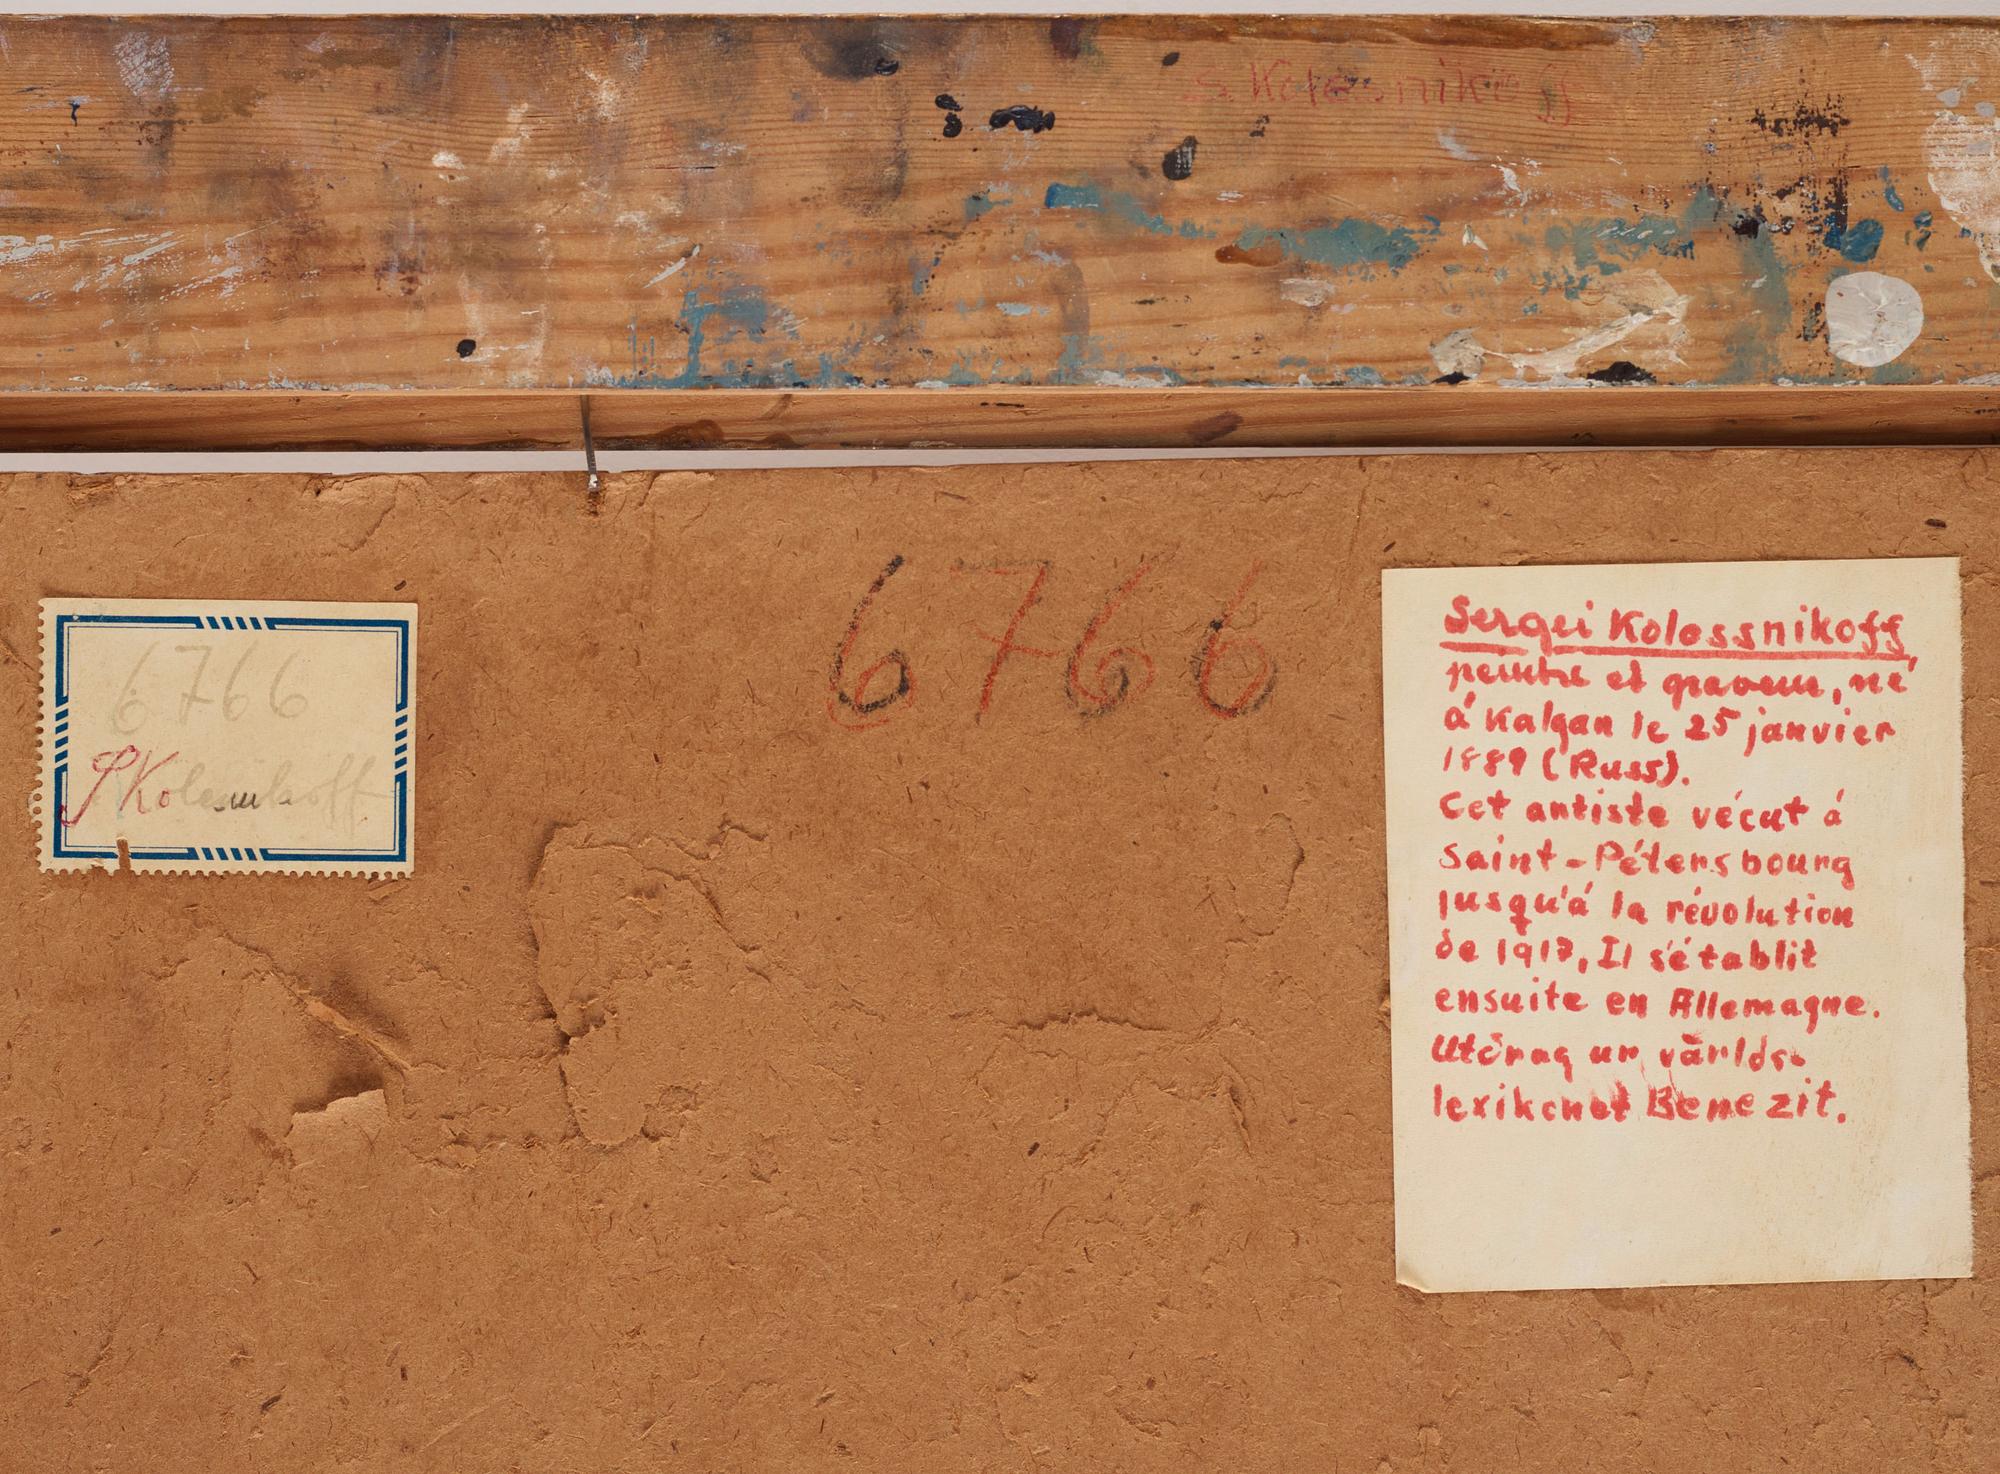 S Kolesnikoff
6766
6766
SKolesnikoff
Sergei Kolossnikoff,
peintre et graveur, né
á Kalgan le 25 janvier
1889 (Russ).
Cet antiste vécut á
Saint-Pétersbourg
jusqu'á la révolution
de 1917, Il s'établit
ensuite en Allemagne.
Utdrag ur världs-
lexikonet Benezit.